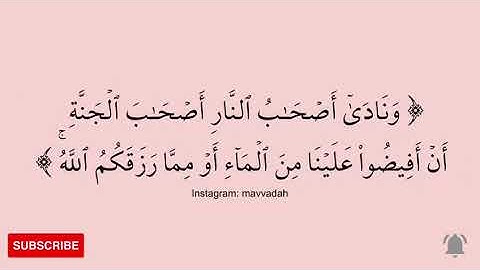 ﴿ وَنَادَىٰٓ أَصۡحَـٰبُ ٱلنَّارِ أَصۡحَـٰبَ ٱلۡجَنَّةِ
أَنۡ أَفِیضُوا۟ عَلَیۡنَا مِنَ ٱلۡمَاۤءِ أَوۡ مِمَّا رَزَقَكُمُ ٱللَّهُۚ ﴾
Instagram: mavvadah
SUBSCRIBE